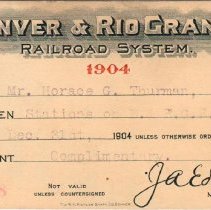 NVER & RIO GRAN
RAILROAD SYSTEM.
1904
Mr. Horace G. Thurman,
EN Stations on
Dec. 31st, 1904 UNLESS OTHERWISE ORD
NT Complimentary.
NOT VALID
UNLESS COUNTERSIGNED